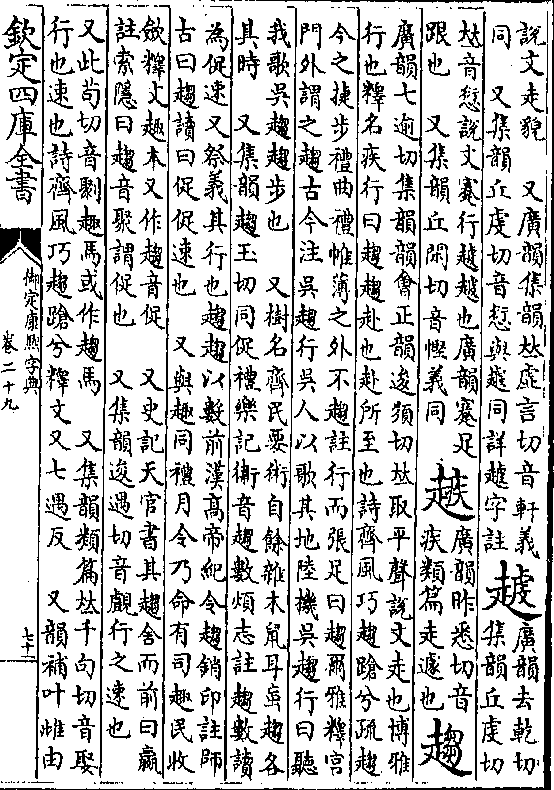 說文走貌 又廣韻集韻𠀤虛言切音軒義
同 又集韻丘虔切音愆與同詳字註
廣韻去乾切
集韻丘虔切
𠀤音愆說文蹇行也廣韻蹇足
跟也 又集韻丘閑切音慳義同
廣韻昨悉切音
疾類篇走遽也
趨
廣韻七逾切集韻韻會正韻逡須切𠀤取平聲說文走也博雅
行也釋名疾行曰趨趨赴也赴所至也詩齊風巧趨蹌兮疏趨
今之捷步禮曲禮帷薄之外不趨註行而張足曰趨爾雅釋宮
門外謂之趨古今注吳趨行吳人以歌其地陸機吳趨行曰聽
我歌吳趨趨步也 又樹名齊民要術自餘雜木鼠耳䖟趨各
其時 又集韻趨玉切同促禮樂記衛音趨數煩志註趨數讀
為促速又祭義其行也趨趨以數前漢高帝紀令趨銷印註師
古曰趨讀曰促促速也 又與趣同禮月令乃命有司趣民收
斂釋文趣本又作趨音促 又史記天官書其趨舍而前曰贏
註索隱曰趨音聚謂促也 又集韻逡遇切音覷行之速也
又此茍切音趣馬或作趨馬 又集韻類篇𠀤千句切音娶
行也速也詩齊風巧趨蹌兮釋文又七遇反 又韻補叶雌由
欽定四庫全書
御定康熙字典
卷二十九
七十一